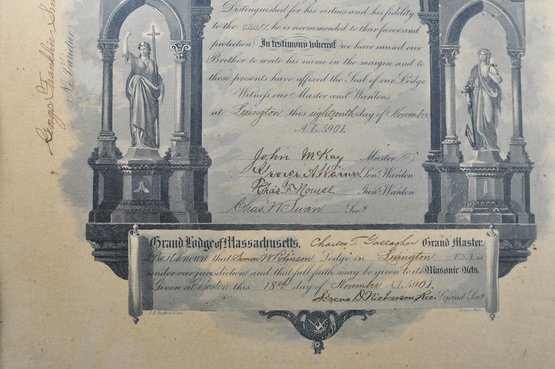 Distinguished for his virtues and his fidelity
to the CRAFT, he is recommended to their favor and
protection. In testimony whereof we have caused our
Brother to write his name in the margin and to
these presents have affixed the Seal of our Lodge
Witness our Master and Wardens
at Lexington this eighteenth day of November
A.L. 5901.
John McKay Master
Senr Warden
Chas. F. Nourse Junr Warden
Chas. W. Swan Secy
Ne Varietur
George Franklin
Grand Lodge of Massachusetts. Charles T. Gallagher Grand Master.
Be it known that Simon W. Robinson Lodge in Lexington U.S.A. is
under our jurisdiction and that full faith may be given to its Masonic Acts.
Given at Boston this 18th day of November A.L. 5901.
Sereno D. Nickerson Rec. Grand Secy